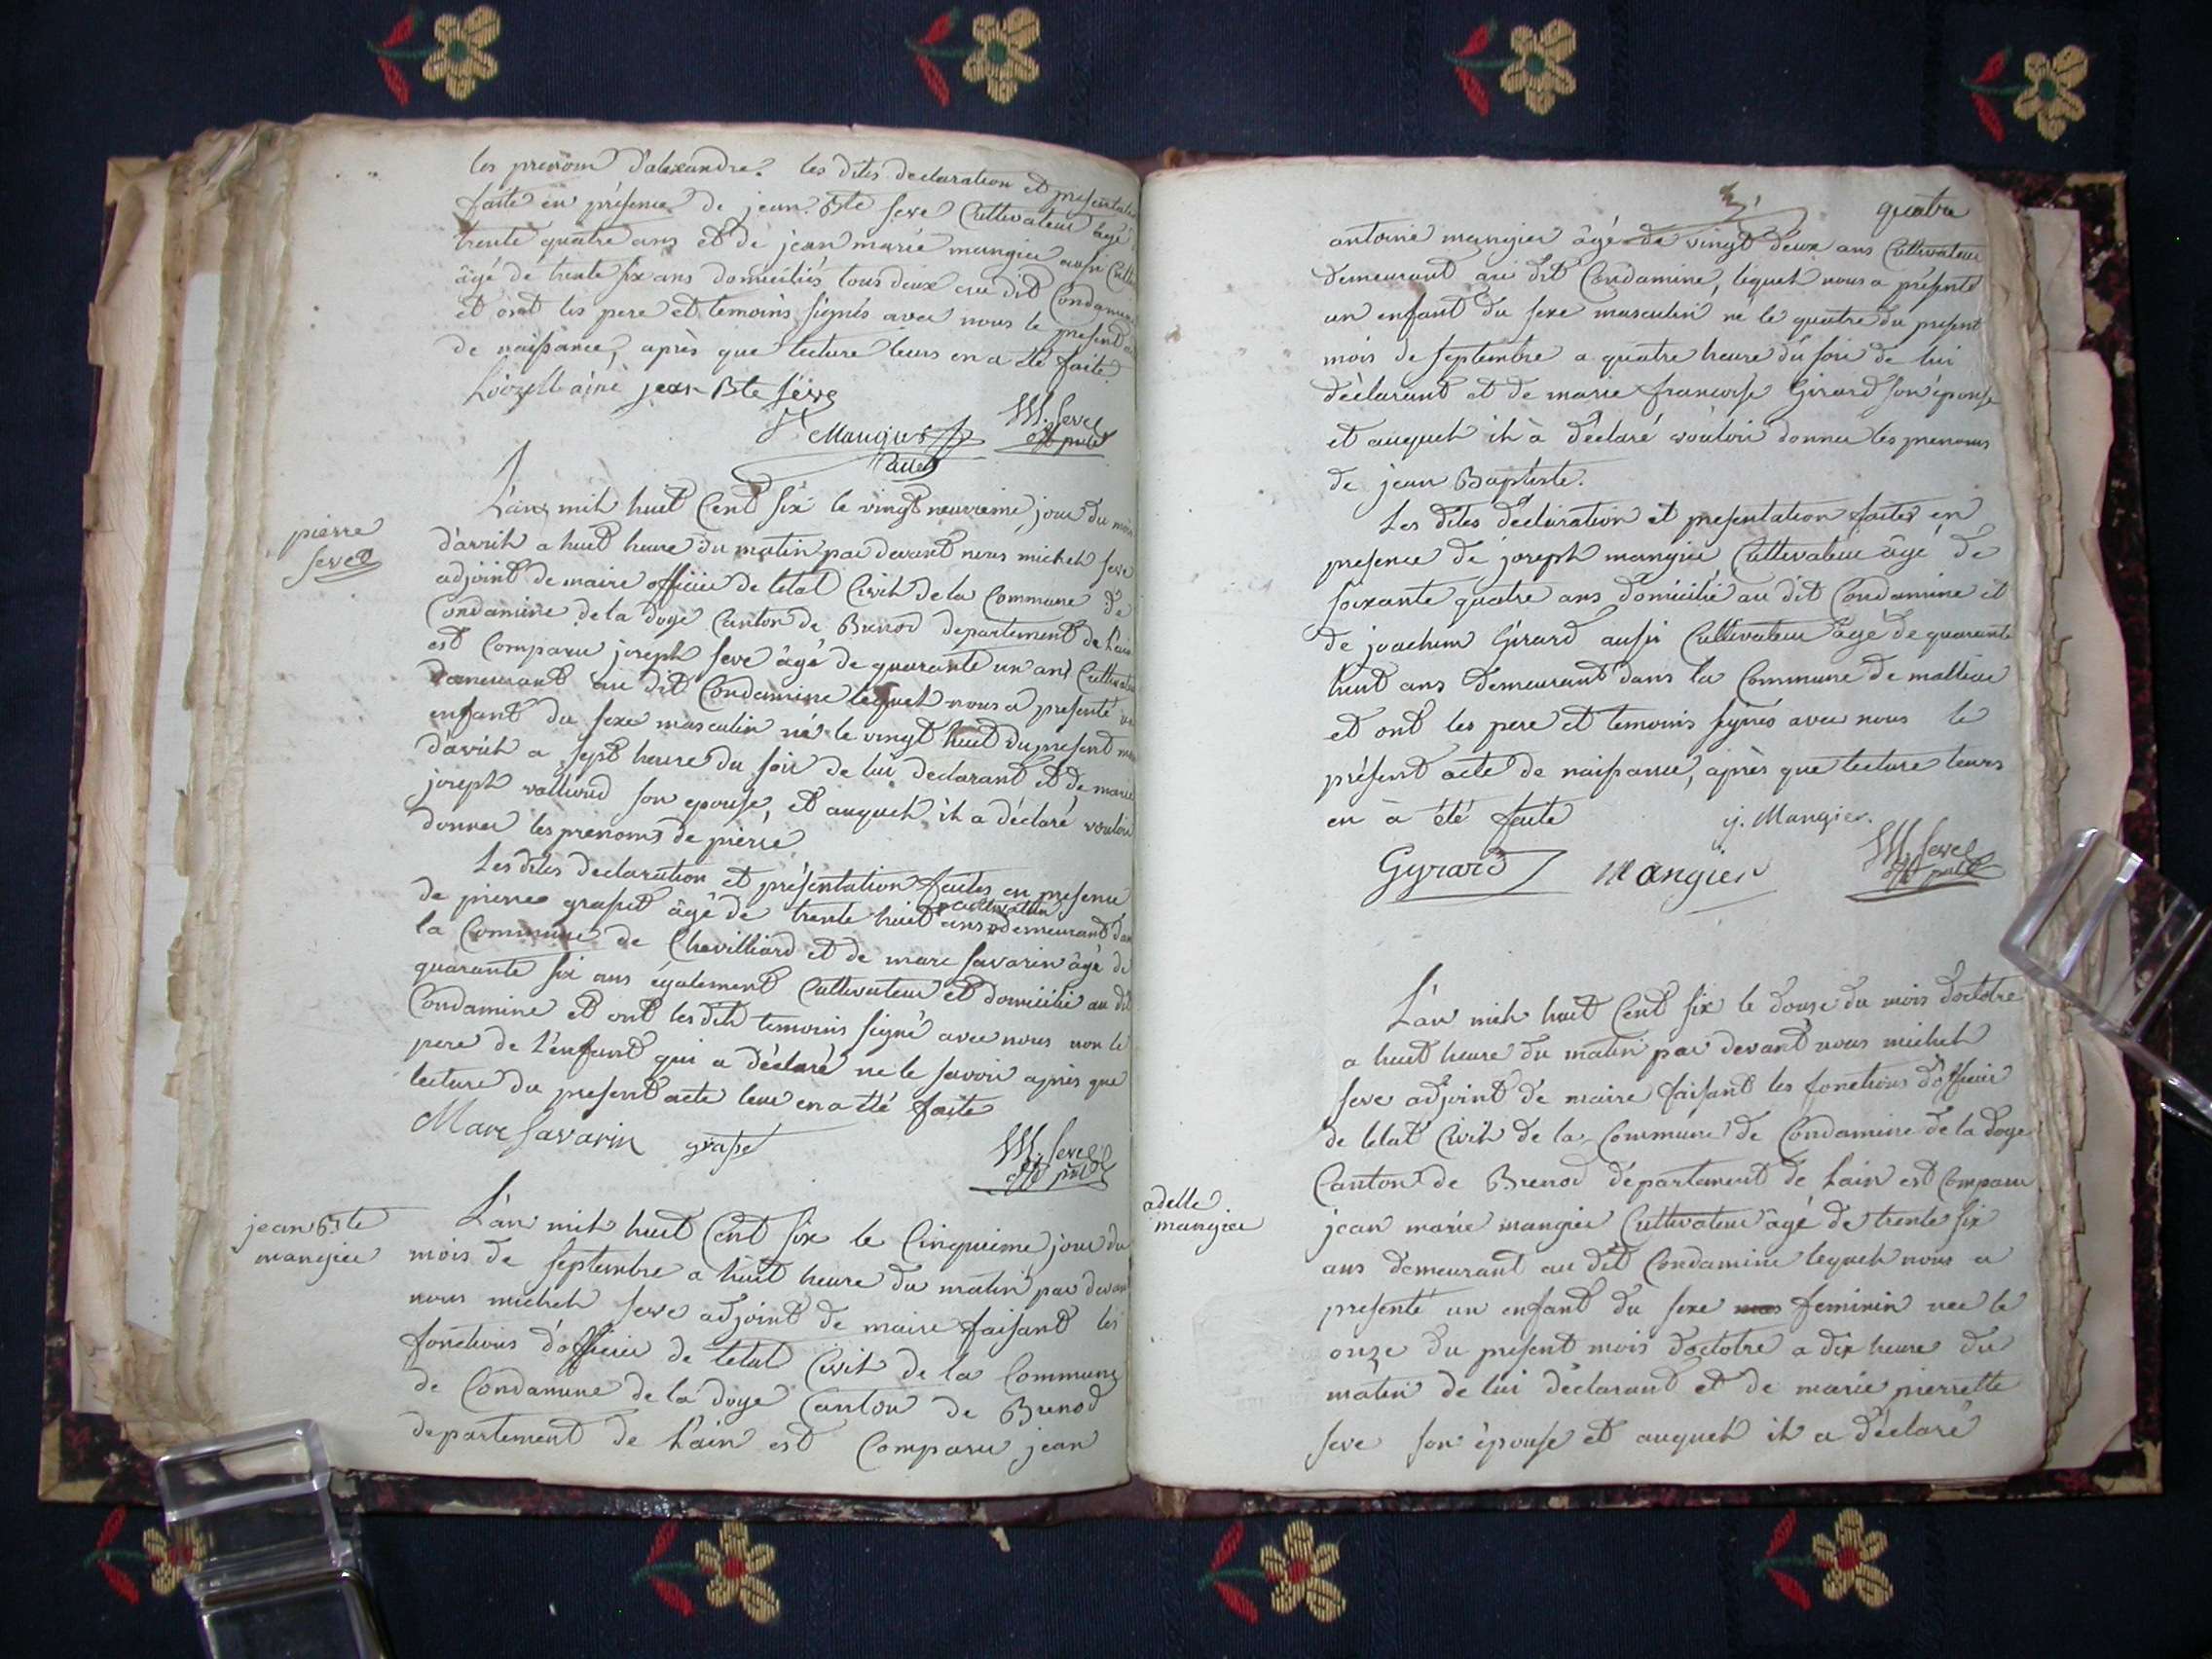 les prenom d'alexandre. les dites declaration et presentation
faite en présence de jean Bte seve Cultivateur âgé
trente quatre ans et de jean marie mangier aussi Cultiv
âgé de trente six ans domiciliés tous deux au dit Condamine
et ont les pere et temoins signés avec nous le present
de naissance, après que lecture leurs en a été faite
ainé jean Bte séve
Mangier M. Seve
L'an mil huit Cent six le vingt neuvieme jour du mois
pierre
seve
d'avril a huit heure du matin par devant nous michel seve
adjoint de maire officier de letat Civil de la Commune de
Condamine de la doye Canton de Brenod departement de l'ain
est Comparu joseph seve âgé de quarante un ans Cultivateur
demeurant au dit Condamine lequel nous a presenté un
enfant du sexe masculin né le vingt huit du present mois
d'avril a sept heure du soir de lui declarant et de marie
joseph son epouse, et auquel il a déclaré vouloir
donner les prenoms de pierre
Les dites declaration et présentation faites en presence
de pierre grapet âgé de trente huit ans cultivateur demeurant dans
la Commune de Chevilliard et de marc savarin âgé de
quarante six ans également Cultivateur et domicilié au dit
Condamine et ont les dits temoins signé avec nous non le
pere de l'enfant qui a déclaré ne le savoir après que
lecture du present acte leur en a été faite
Marc Savarin grapet M. Seve
jean Bte
mangier
L'an mil huit Cent six le Cinquieme jour du
mois de septembre a huit heure du matin par devant
nous michel seve adjoint de maire faisant les
fonctions d'officier de letat Civil de la Commune
de Condamine de la doye Canton de Brenod
departement de l'ain est Comparu jean
quatre
antoine mangier âgé de vingt deux ans Cultivateur
demeurant au dit Condamine, lequel nous a présenté
un enfant du sexe masculin ne le quatre du present
mois de septembre a quatre heure du soir de lui
déclarant et de marie francoise Girard son épouse
et auquel il à déclaré vouloir donner les prenoms
de jean Baptiste.
Les dites declaration et presentation faites en
presence de joseph mangier, Cultivateur âgé de
soixante quatre ans domicilié au dit Condamine et
de joachim Girard aussi Cultivateur âgé de quarante
huit ans demeurant dans la Commune de
et ont les pere et temoins signés avec nous le
présent acte de naissance, après que lecture leurs
en à été faite j. Mangier.
Gyrard Mangier M. Seve
L'an mil huit Cent six le douse du mois d'octobre
a huit heure du matin par devant nous michel
seve adjoint de maire faisant les fonctions d'officier
de letat Civil de la Commune de Condamine de la doye
Canton de Brenod département de lain est Comparu
adelle
mangier
jean marie mangier Cultivateur âgé de trente six
ans demeurant au dit Condamine lequel nous a
presenté un enfant du sexe mas feminin nee le
onze du present mois d'octobre a dix heure du
matin de lui déclarant et de marie pierrette
seve son épouse et auquel il a déclaré